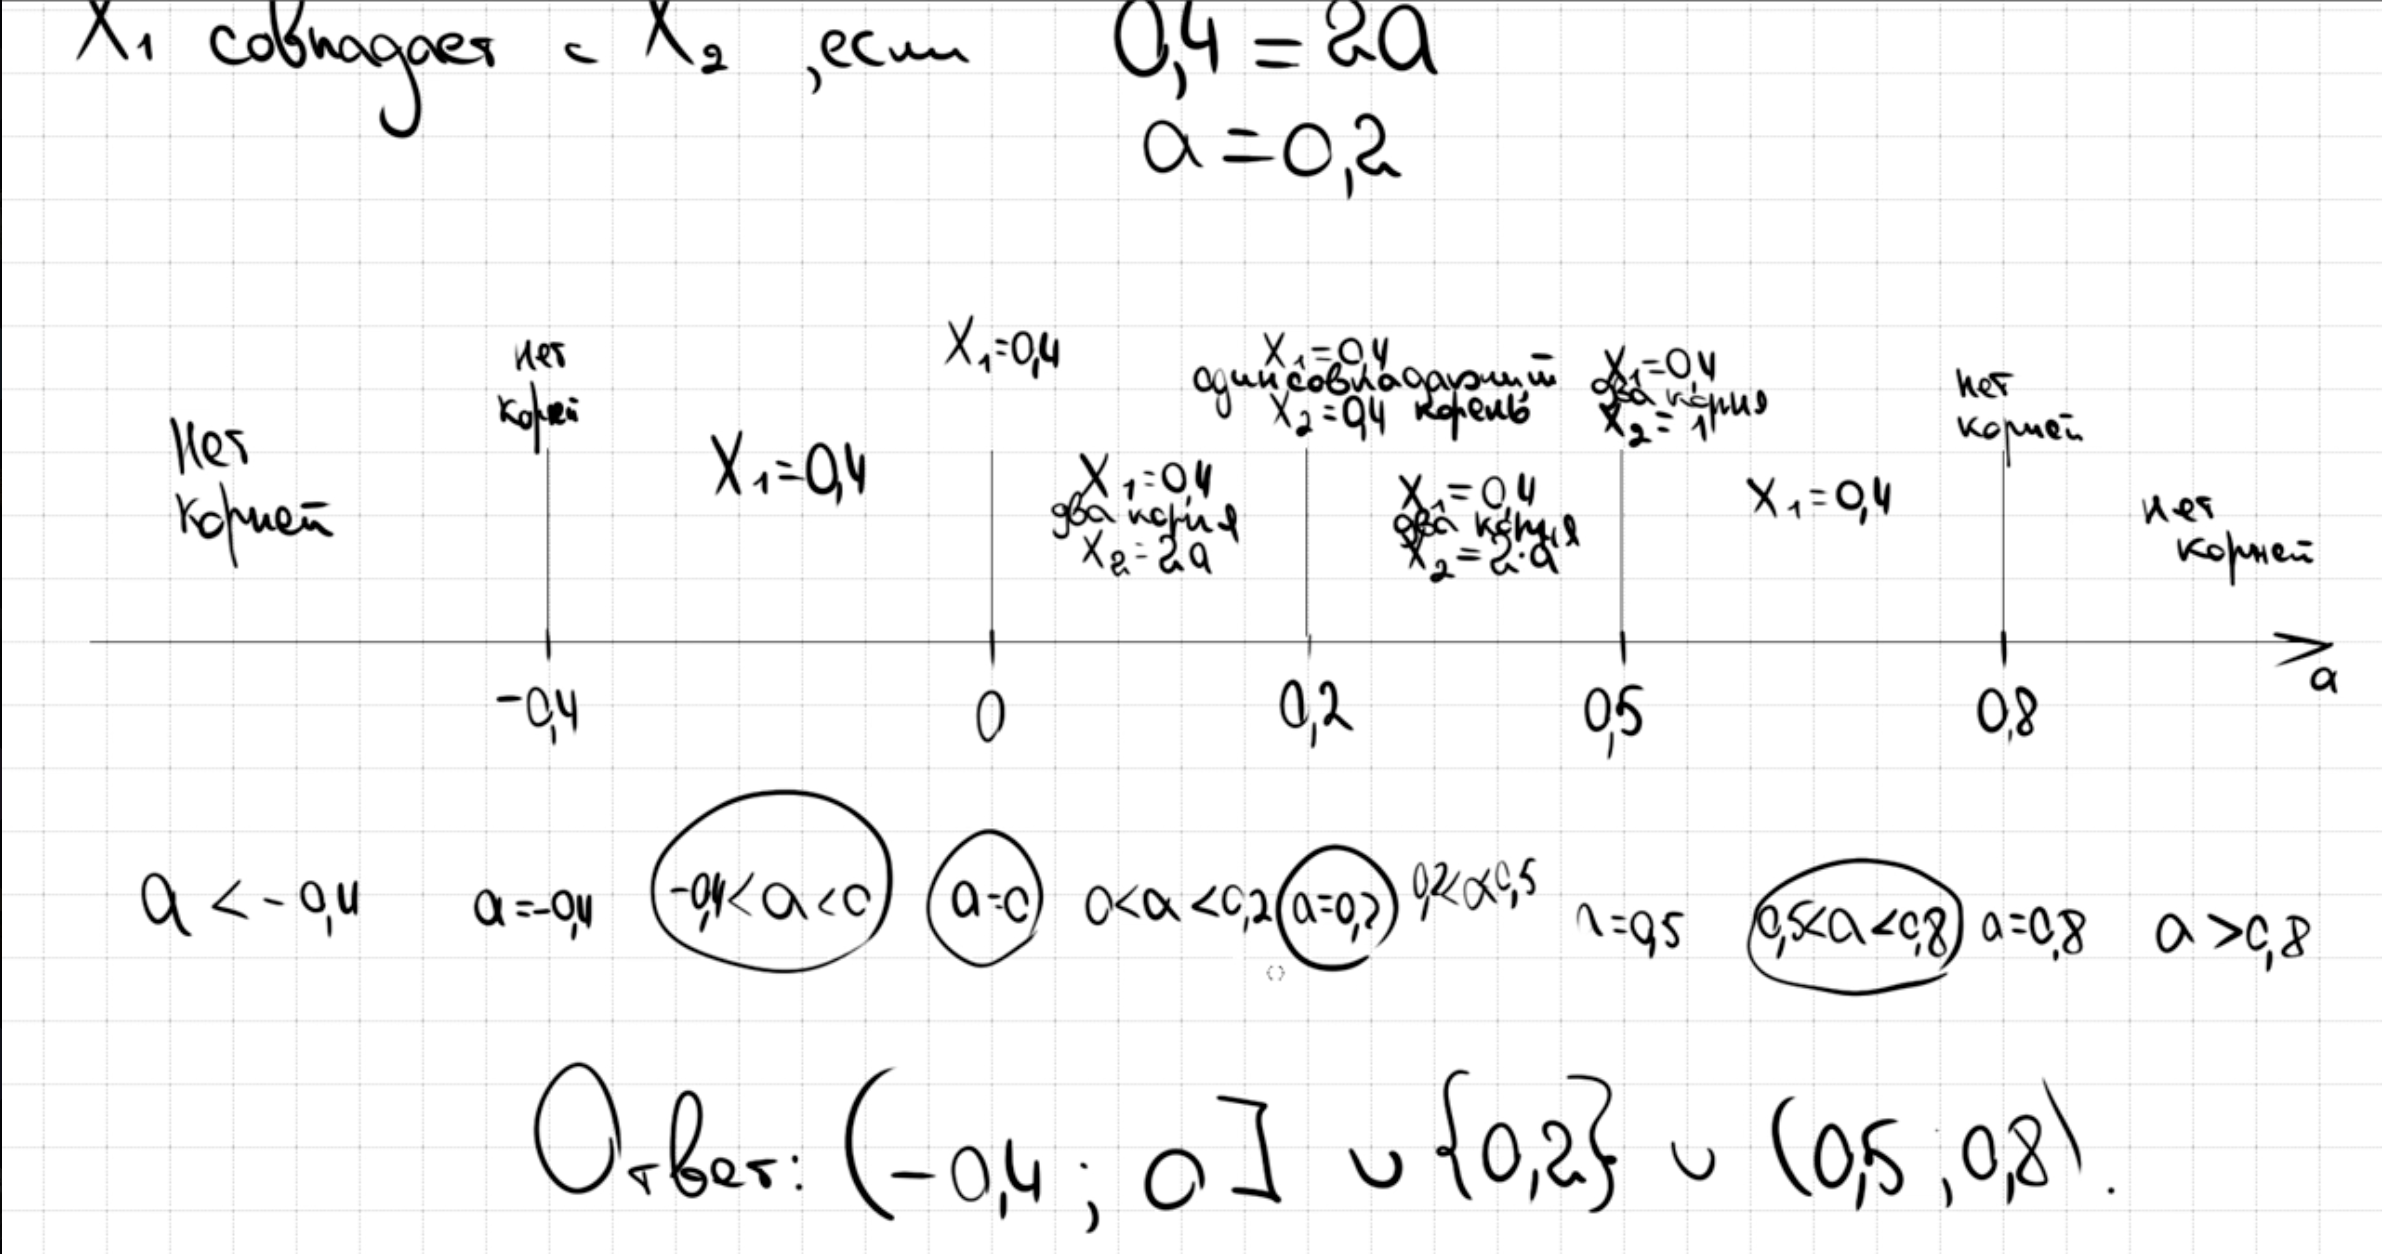 X₁ совпадает с X₂, если 0,4 = 2a
a = 0,2
нет корней
нет корней
X₁=0,4
X₁=0,4
X₁=0,4
два корня
X₂=2a
X₁=0,4
один совпадающий
X₂=0,4 корень
X₁=0,4
два корня
X₂=2·a
X₁=0,4
два корня
X₂=1
X₁=0,4
нет корней
нет корней
-0,4 0 0,2 0,5 0,8 a
a < -0,4 a=-0,4 -0,4<a<0 a=0 0<a<0,2 a=0,2 0,2<a<0,5 a=0,5 0,5<a<0,8 a=0,8 a>0,8
Ответ: (-0,4; 0] ∪ {0,2} ∪ (0,5; 0,8).